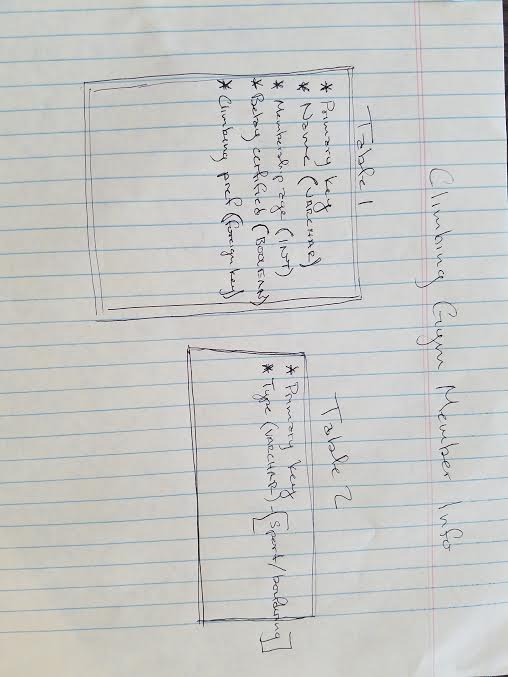 Climbing Gym Member Info
Table 1
* Primary key
* Name (VARCHAR)
* Membership age (INT)
* Belay certified (BOOLEAN)
* Climbing pref (foreign key)
Table 2
* Primary key
* Type (VARCHAR) - [Sport/bouldering]